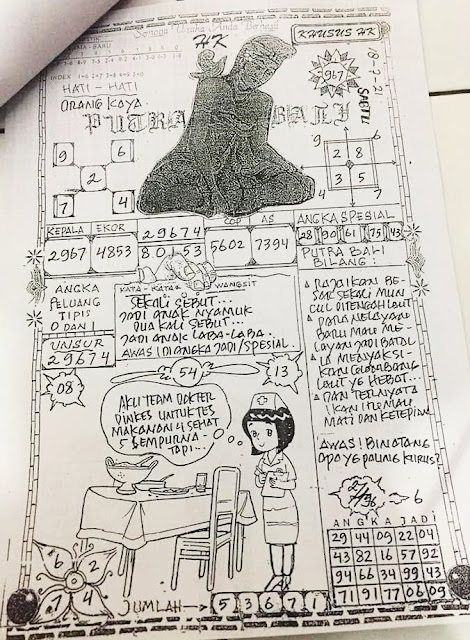 Semoga Usaha Anda Berhasil
HK
KHUSUS HK
967
SABTU
INDEX
HATI - HATI
ORANG KAYA
PUTRA BALI
9 6
2
7 4
9 6
2 8
3 5
4 7
KEPALA EKOR 29674 COP AS ANGKA SPESIAL
2967 4853 80153 5602 7394
28 30 61 75 43
PUTRA BALI
BILANG :
ANGKA
PELUANG
TIPIS
0 DAN 1
UNSUR
29674
KATA - KATA WANGSIT
SEKALI SEBUT...
JADI ANAK NYAMUK
DUA KALI SEBUT...
JADI ANAK LABA-LABA.
AWAS! DIANGKA JADI/SPESIAL
RAJA IKAN BE-
SAR SEKALI MUN
CUL DITENGAH LAUT
PARA NELAYAN
BARU MAU ME-
LAYAN JADI BATAL
IA MENYAKSI-
KAN GELOMBANG
LAUT YG HEBAT...
DAN TERNYATA
IKAN ITU MAU
MATI DAN KETEPIAN
AWAS! BINATANG
APA YG PALING KURUS?
08
54
13
AKU TEAM DOKTER
DINKES UNTUK TES
MAKANAN 4 SEHAT
5 SEMPURNA -
TAPI...
6
ANGKA JADI
29 44 09 22 04
43 82 16 57 92
94 66 34 99 49
71 91 77 06 09
6 2
7 4
JUMLAH → 5 3 6 7 1